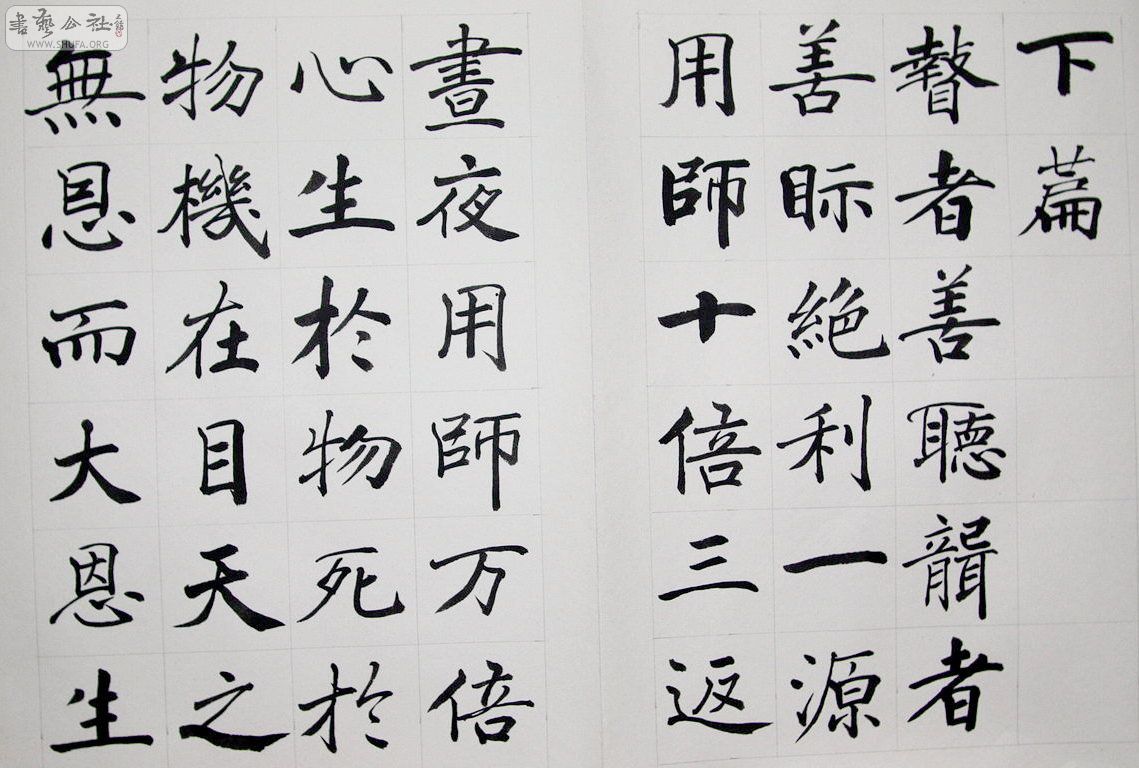 下篇
瞽者善聽聾者
善眎絶利一源
用師十倍三返
晝夜用師万倍
心生於物死於
物機在目天之
無恩而大恩生
書藝公社
WWW.SHUFA.ORG